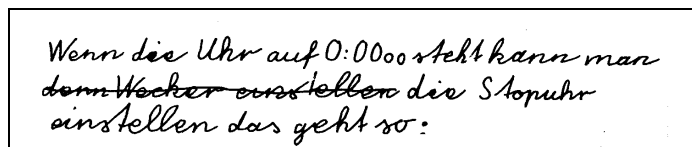 Wenn die Uhr auf 0:00oo steht kann man
denn Wecker einstellen die Stopuhr
einstellen das geht so: